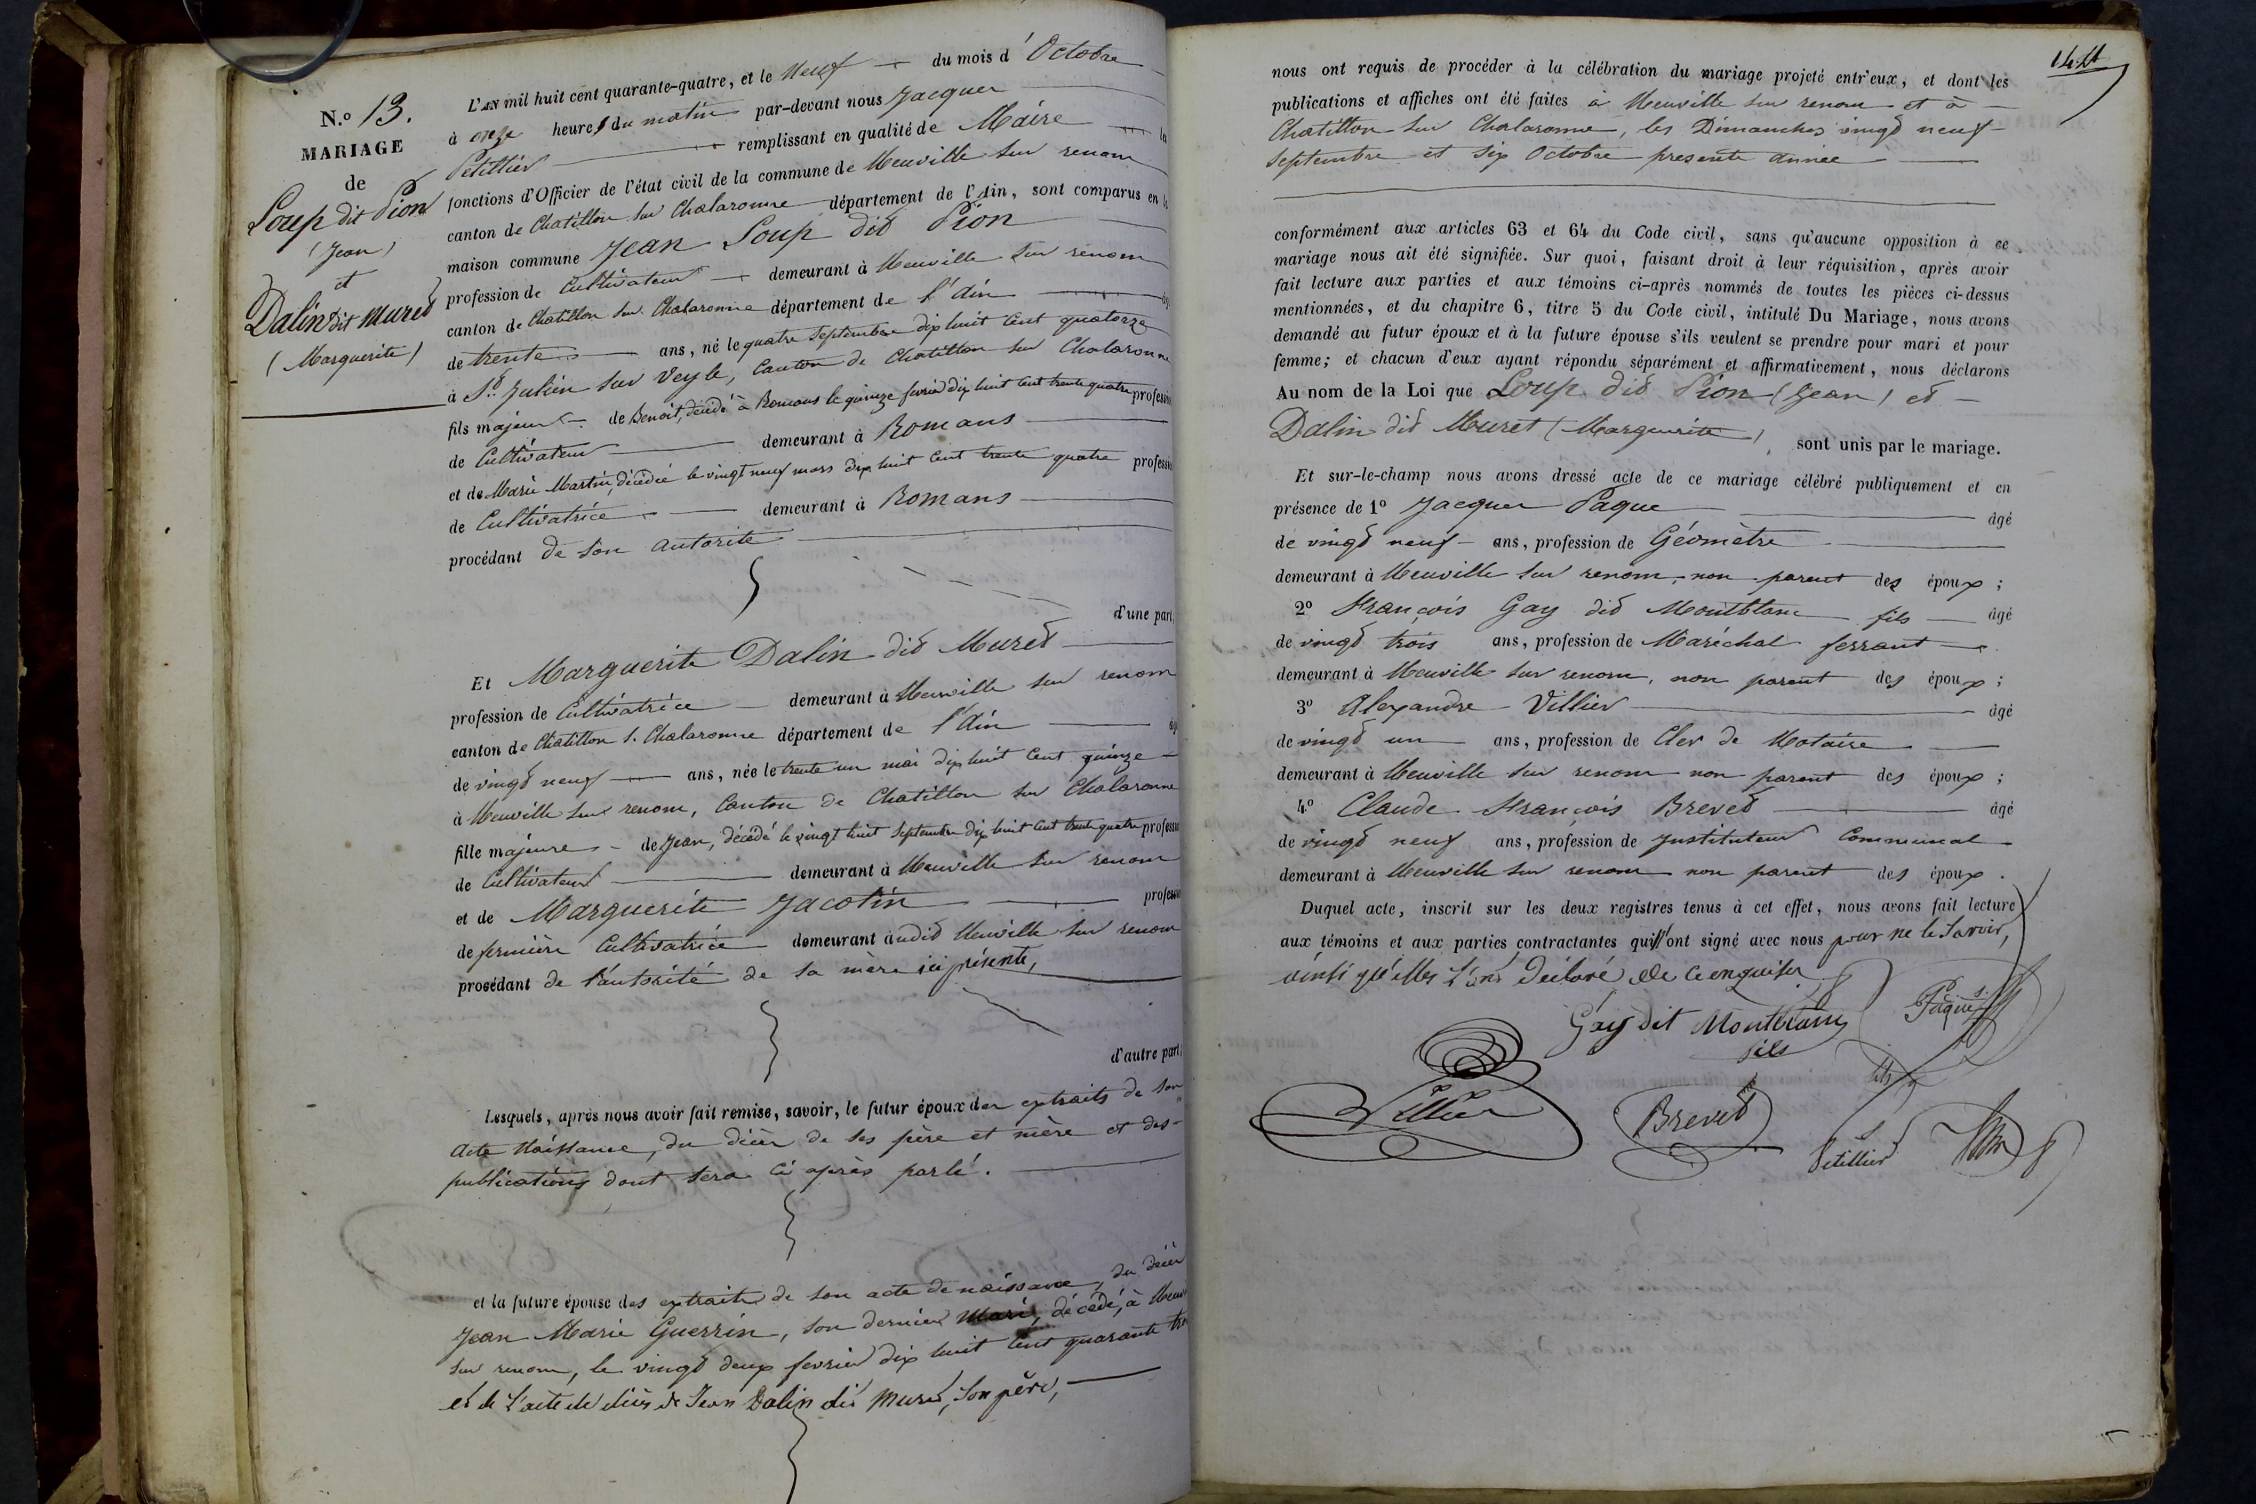 N.o 13.
MARIAGE
de
Loup dit Pion
(Jean)
et
Dalin dit Muret
(Marguerite)
L'AN mil huit cent quarante-quatre, et le Neuf du mois d'Octobre
à onze heures du matin par-devant nous Jacques
Petillier remplissant en qualité de Maire la
fonctions d'Officier de l'état civil de la commune de Neuville sur renom
canton de Chatillon sur Chalaronne département de l'Ain, sont comparus en la
maison commune Jean Loup dit Pion
profession de Cultivateur demeurant à Neuville sur renom
canton de Chatillon sur Chalaronne département de l'Ain
de trente ans, né le quatre Septembre dix huit Cent quatorze
à St Julien sur Veyle, Canton de Chatillon sur Chalaronne
fils majeur de Benoit, décédé à Romans le quinze fevrier dix huit cent trente quatre professio
de Cultivateur demeurant à Romans
et de Marie Martin, décédée le vingt neuf mars dix huit Cent trente quatre professio
de Cultivatrice demeurant à Romans
procédant de son autorité
d'une part,
Et Marguerite Dalin dit Muret
profession de Cultivatrice demeurant à Neuville sur renom
canton de Chatillon s. Chalaronne département de l'Ain
de vingt neuf ans, née le trente un mai dix huit Cent quinze
à Neuville sur renom, Canton de Chatillon sur Chalaronne
fille majeure de Jean, décédé le vingt huit Septembre dix huit Cent trente quatre professio
de Cultivateur demeurant à Neuville sur renom
et de Marguerite Jacotin profession
de fermière Cultivatrice demeurant audit Neuville sur renom
procédant de l'autorité de sa mère ici présente,
d'autre part,
Lesquels, après nous avoir fait remise, savoir, le futur époux des extraits de son
acte Naissance, du décès de ses père et mère et des
publications dont sera ci après parlé.
et la future épouse des extraits de son acte de naissance, du décès
Jean Marie Guerrin, son dernier Mari, décédé, à Neuv
sur renom, le vingt deux fevrier dix huit Cent quarante tro
et de l'acte de décès de Jean Dalin dit Muret, son père,
144
nous ont requis de procéder à la célébration du mariage projeté entr'eux, et dont les
publications et affiches ont été faites à Neuville sur renom et à
Chatillon sur Chalaronne, les Dimanches vingt neuf
Septembre et six Octobre presente année
conformément aux articles 63 et 64 du Code civil, sans qu'aucune opposition à ce
mariage nous ait été signifiée. Sur quoi, faisant droit à leur réquisition, après avoir
fait lecture aux parties et aux témoins ci-après nommés de toutes les pièces ci-dessus
mentionnées, et du chapitre 6, titre 5 du Code civil, intitulé Du Mariage, nous avons
demandé au futur époux et à la future épouse s'ils veulent se prendre pour mari et pour
femme; et chacun d'eux ayant répondu séparément et affirmativement, nous déclarons
Au nom de la Loi que Loup dit Pion (Jean) et
Dalin dit Muret (Marguerite), sont unis par le mariage.
Et sur-le-champ nous avons dressé acte de ce mariage célébré publiquement et en
présence de 1o Jacques Paque âgé
de vingt neuf ans, profession de Géomètre
demeurant à Neuville sur renom, non parent des époux;
2o François Gay dit Montblanc fils âgé
de vingt trois ans, profession de Maréchal ferrant
demeurant à Neuville sur renom, non parent des époux;
3o Alexandre Villier âgé
de vingt un ans, profession de Clerc de Notaire
demeurant à Neuville sur renom non parent des époux;
4o Claude François Brevet âgé
de vingt neuf ans, profession de Instituteur Communal
demeurant à Neuville sur renom non parent des époux.
Duquel acte, inscrit sur les deux registres tenus à cet effet, nous avons fait lecture
aux témoins et aux parties contractantes qui n'ont signé avec nous pour ne le savoir,
ainsi qu'elles l'ont déclaré de ce enquises
Gay dit Montblanc
fils
Paque
Villier
Brevet
Petillier